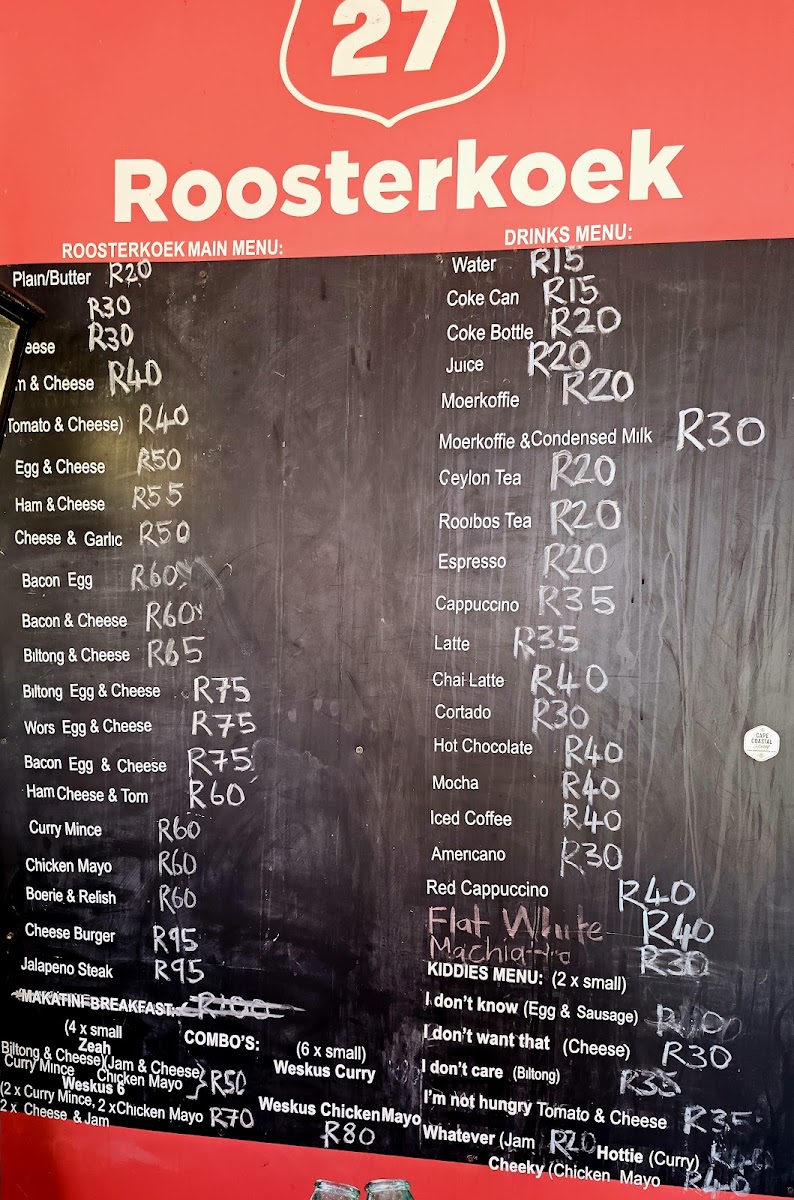 27
Roosterkoek
ROOSTERKOEK MAIN MENU:
Plain/Butter R20
R30
eese R30
& Cheese R40
Tomato & Cheese) R40
Egg & Cheese R50
Ham & Cheese R55
Cheese & Garlic R50
Bacon Egg R60
Bacon & Cheese R60
Biltong & Cheese R65
Biltong Egg & Cheese R75
Wors Egg & Cheese R75
Bacon Egg & Cheese R75
Ham Cheese & Tom R60
Curry Mince R60
Chicken Mayo R60
Boerie & Relish R60
Cheese Burger R95
Jalapeno Steak R95
MAKATINI BREAKFAST: R100
COMBO'S:
(4 x small
Zeah
Biltong & Cheese)(Jam & Cheese)
Curry Mince Chicken Mayo R50
Weskus 6
(2 x Curry Mince, 2 x Chicken Mayo R70
2 x Cheese & Jam
(6 x small)
Weskus Curry
Weskus Chicken Mayo
R80
DRINKS MENU:
Water R15
Coke Can R15
Coke Bottle R20
Juice R20
Moerkoffie R20
Moerkoffie & Condensed Milk R30
Ceylon Tea R20
Rooibos Tea R20
Espresso R20
Cappuccino R35
Latte R35
Chai Latte R40
Cortado R30
Hot Chocolate R40
Mocha R40
Iced Coffee R40
Americano R30
Red Cappuccino R40
Flat White R40
Machiatto R30
KIDDIES MENU: (2 x small)
I don't know (Egg & Sausage)
I don't want that (Cheese) R30
I don't care (Biltong) R35
I'm not hungry Tomato & Cheese R35
Whatever (Jam R20 Hottie (Curry)
Cheeky (Chicken Mayo R40
CAPE
COASTAL